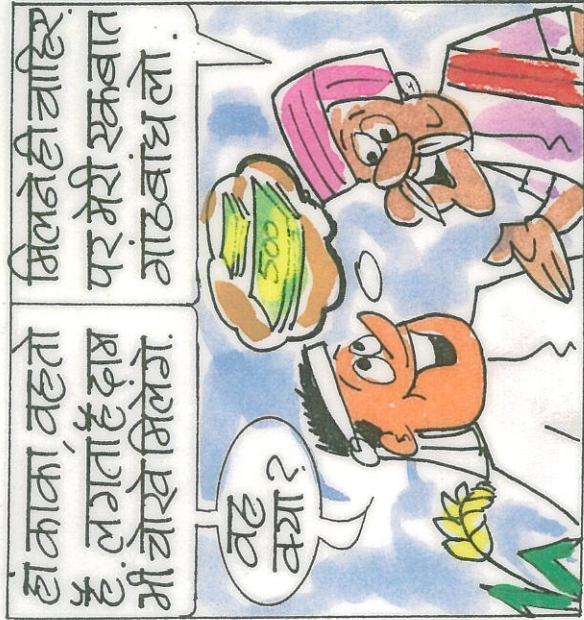 हां काका, वह तो
है. लगता है दाम
भी चोखे मिलेंगे.
मिलने ही चाहिए.
पर मेरी एक बात
गांठ बांध लो.
वह
क्या ?
500